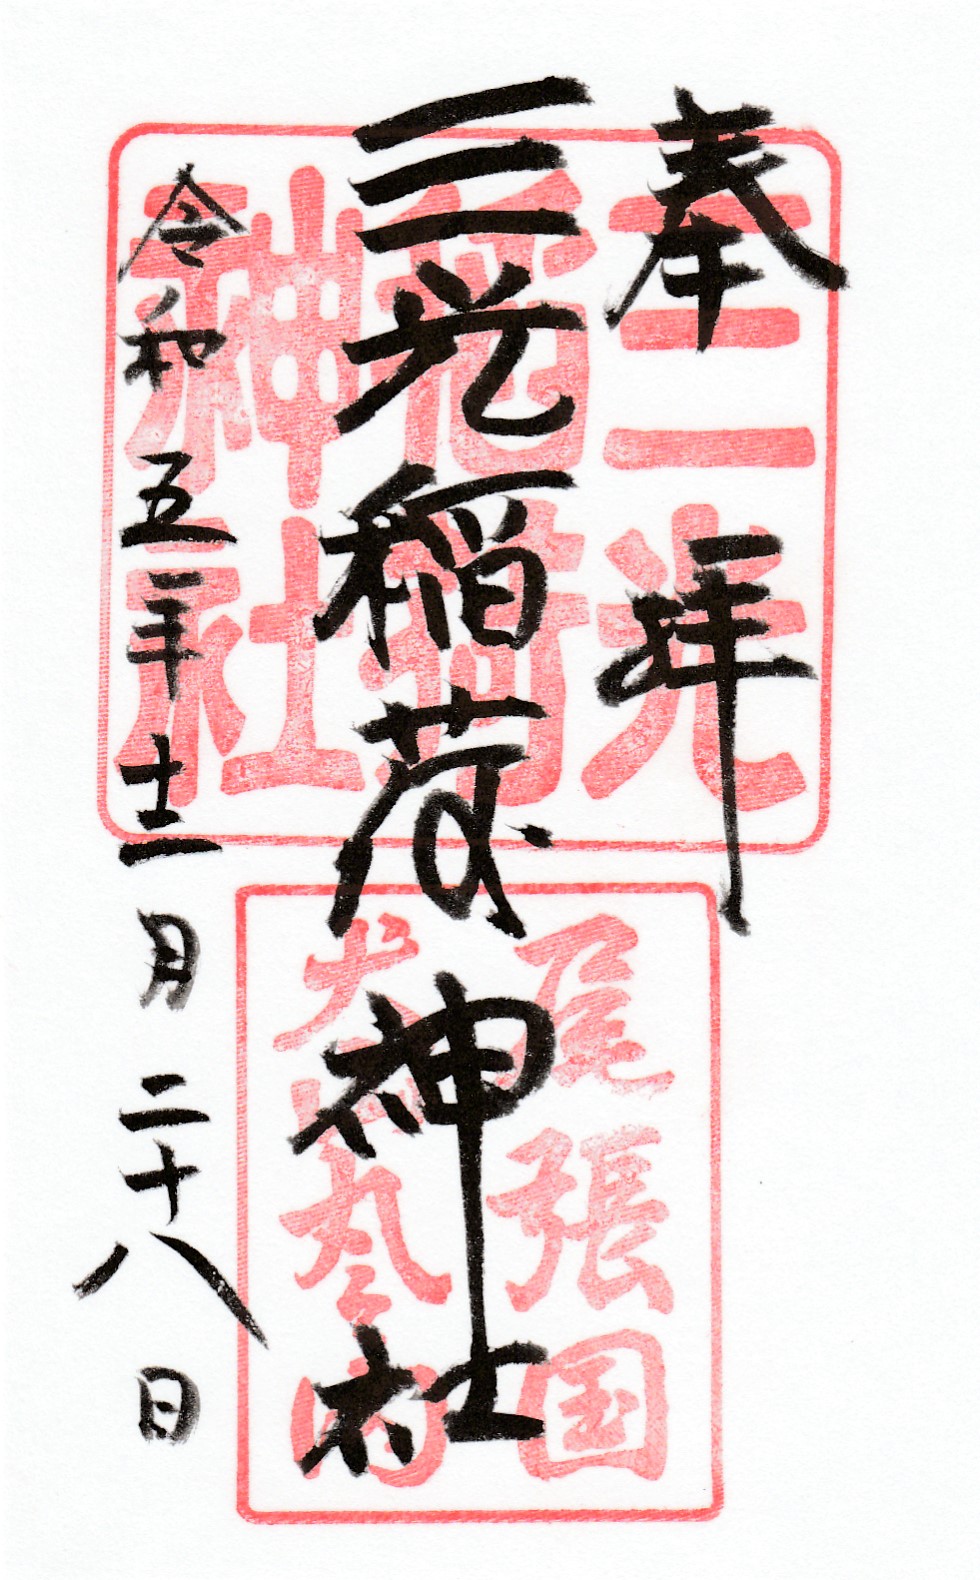 奉拝
三光稲荷神社
令和五年十一月二十八日
三光
稲荷
神社
尾張国
犬山丸之内